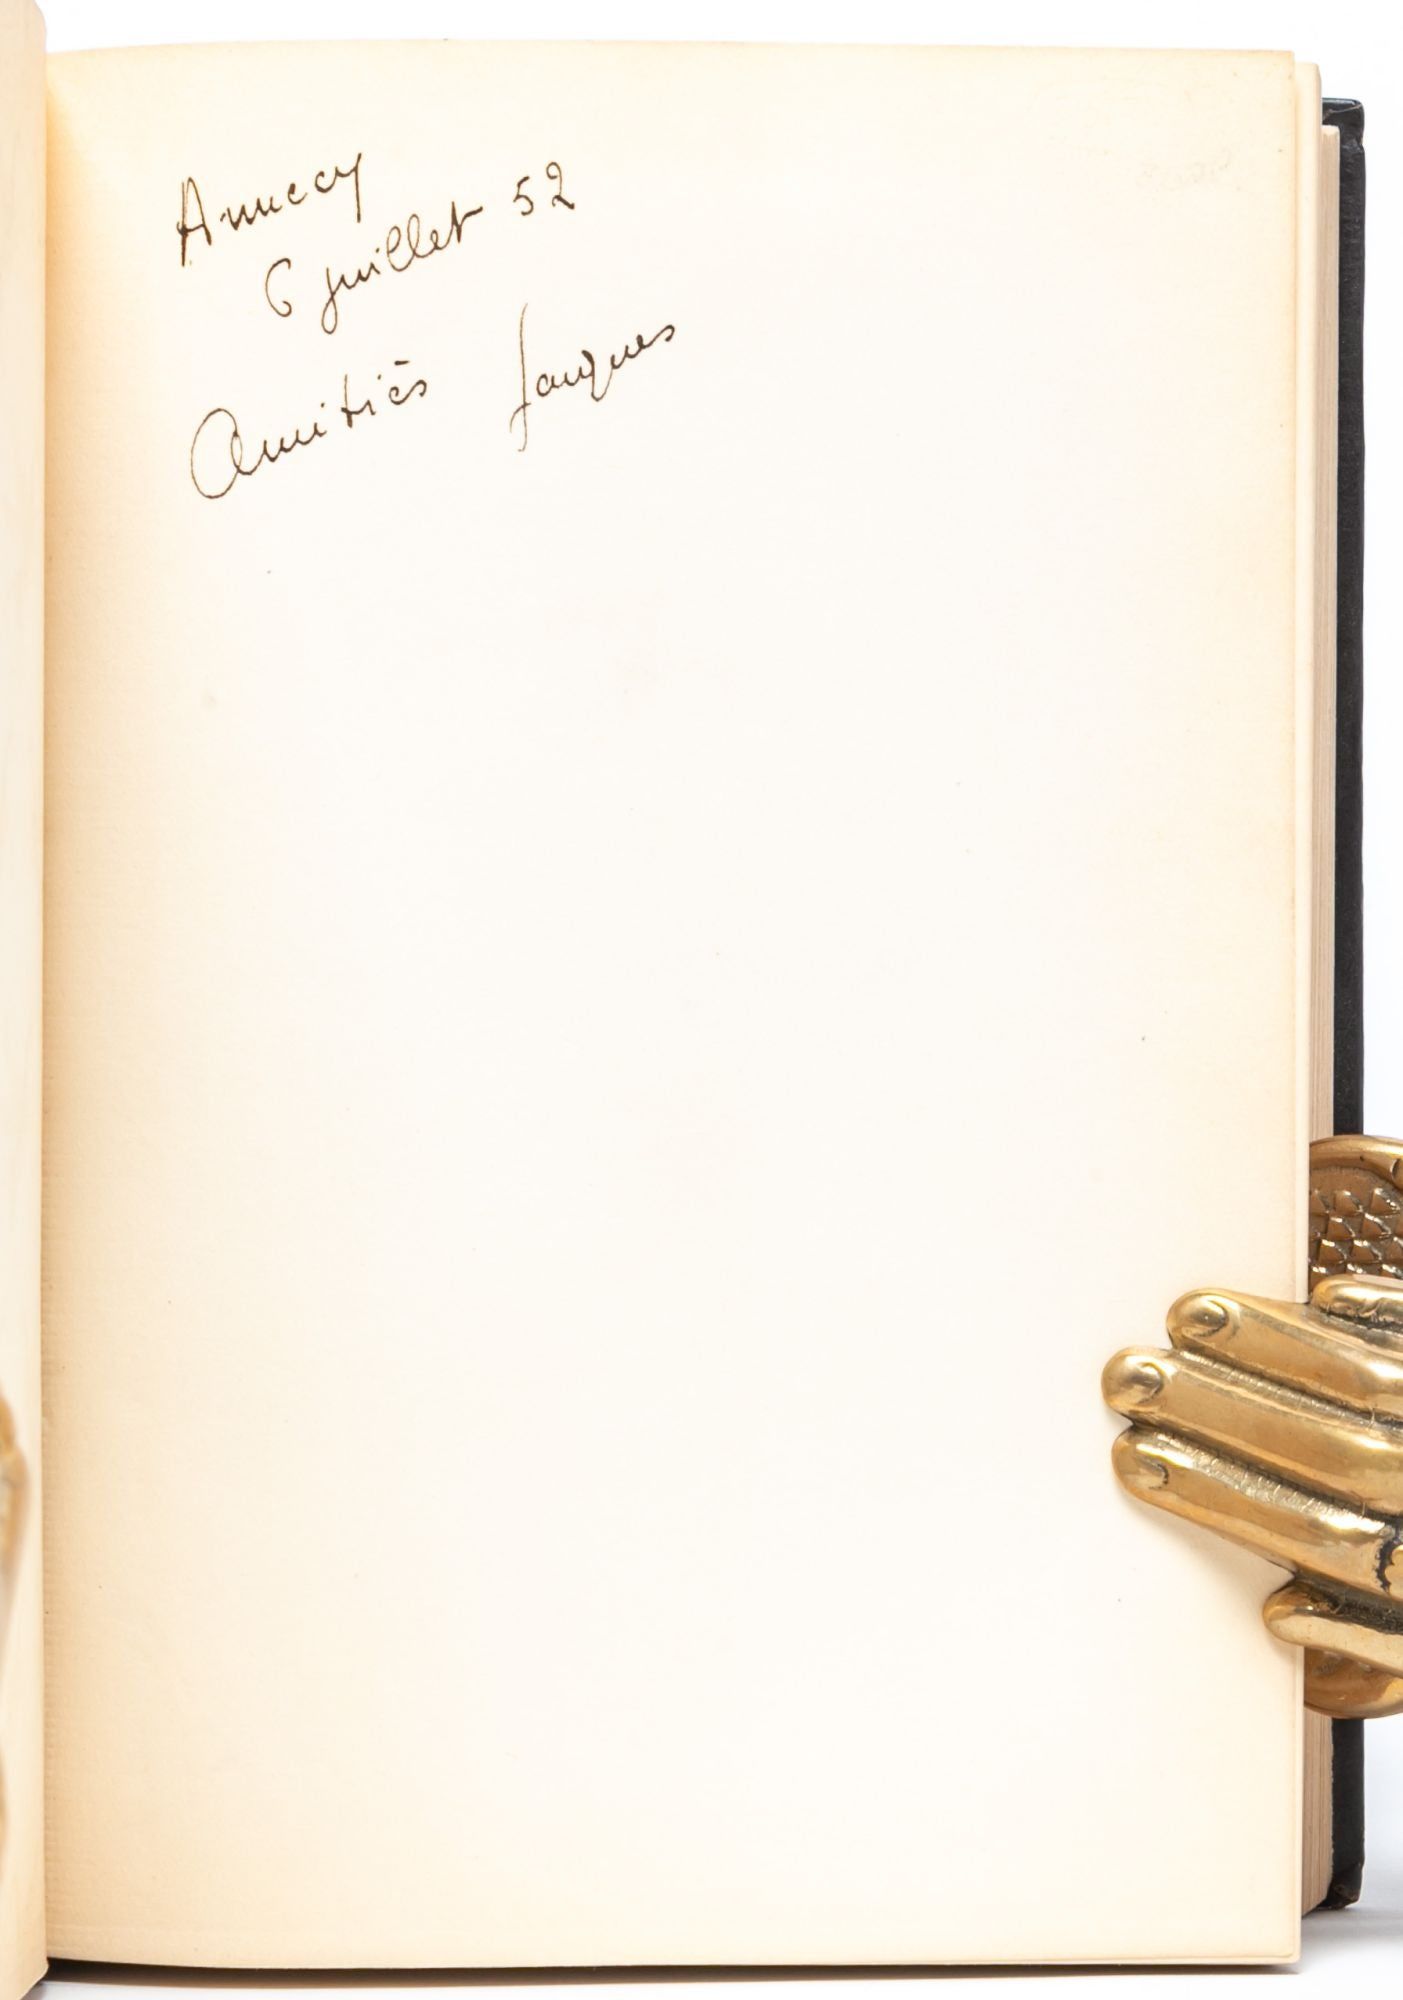 Annecy
6 juillet 52
Amitiés Jacques